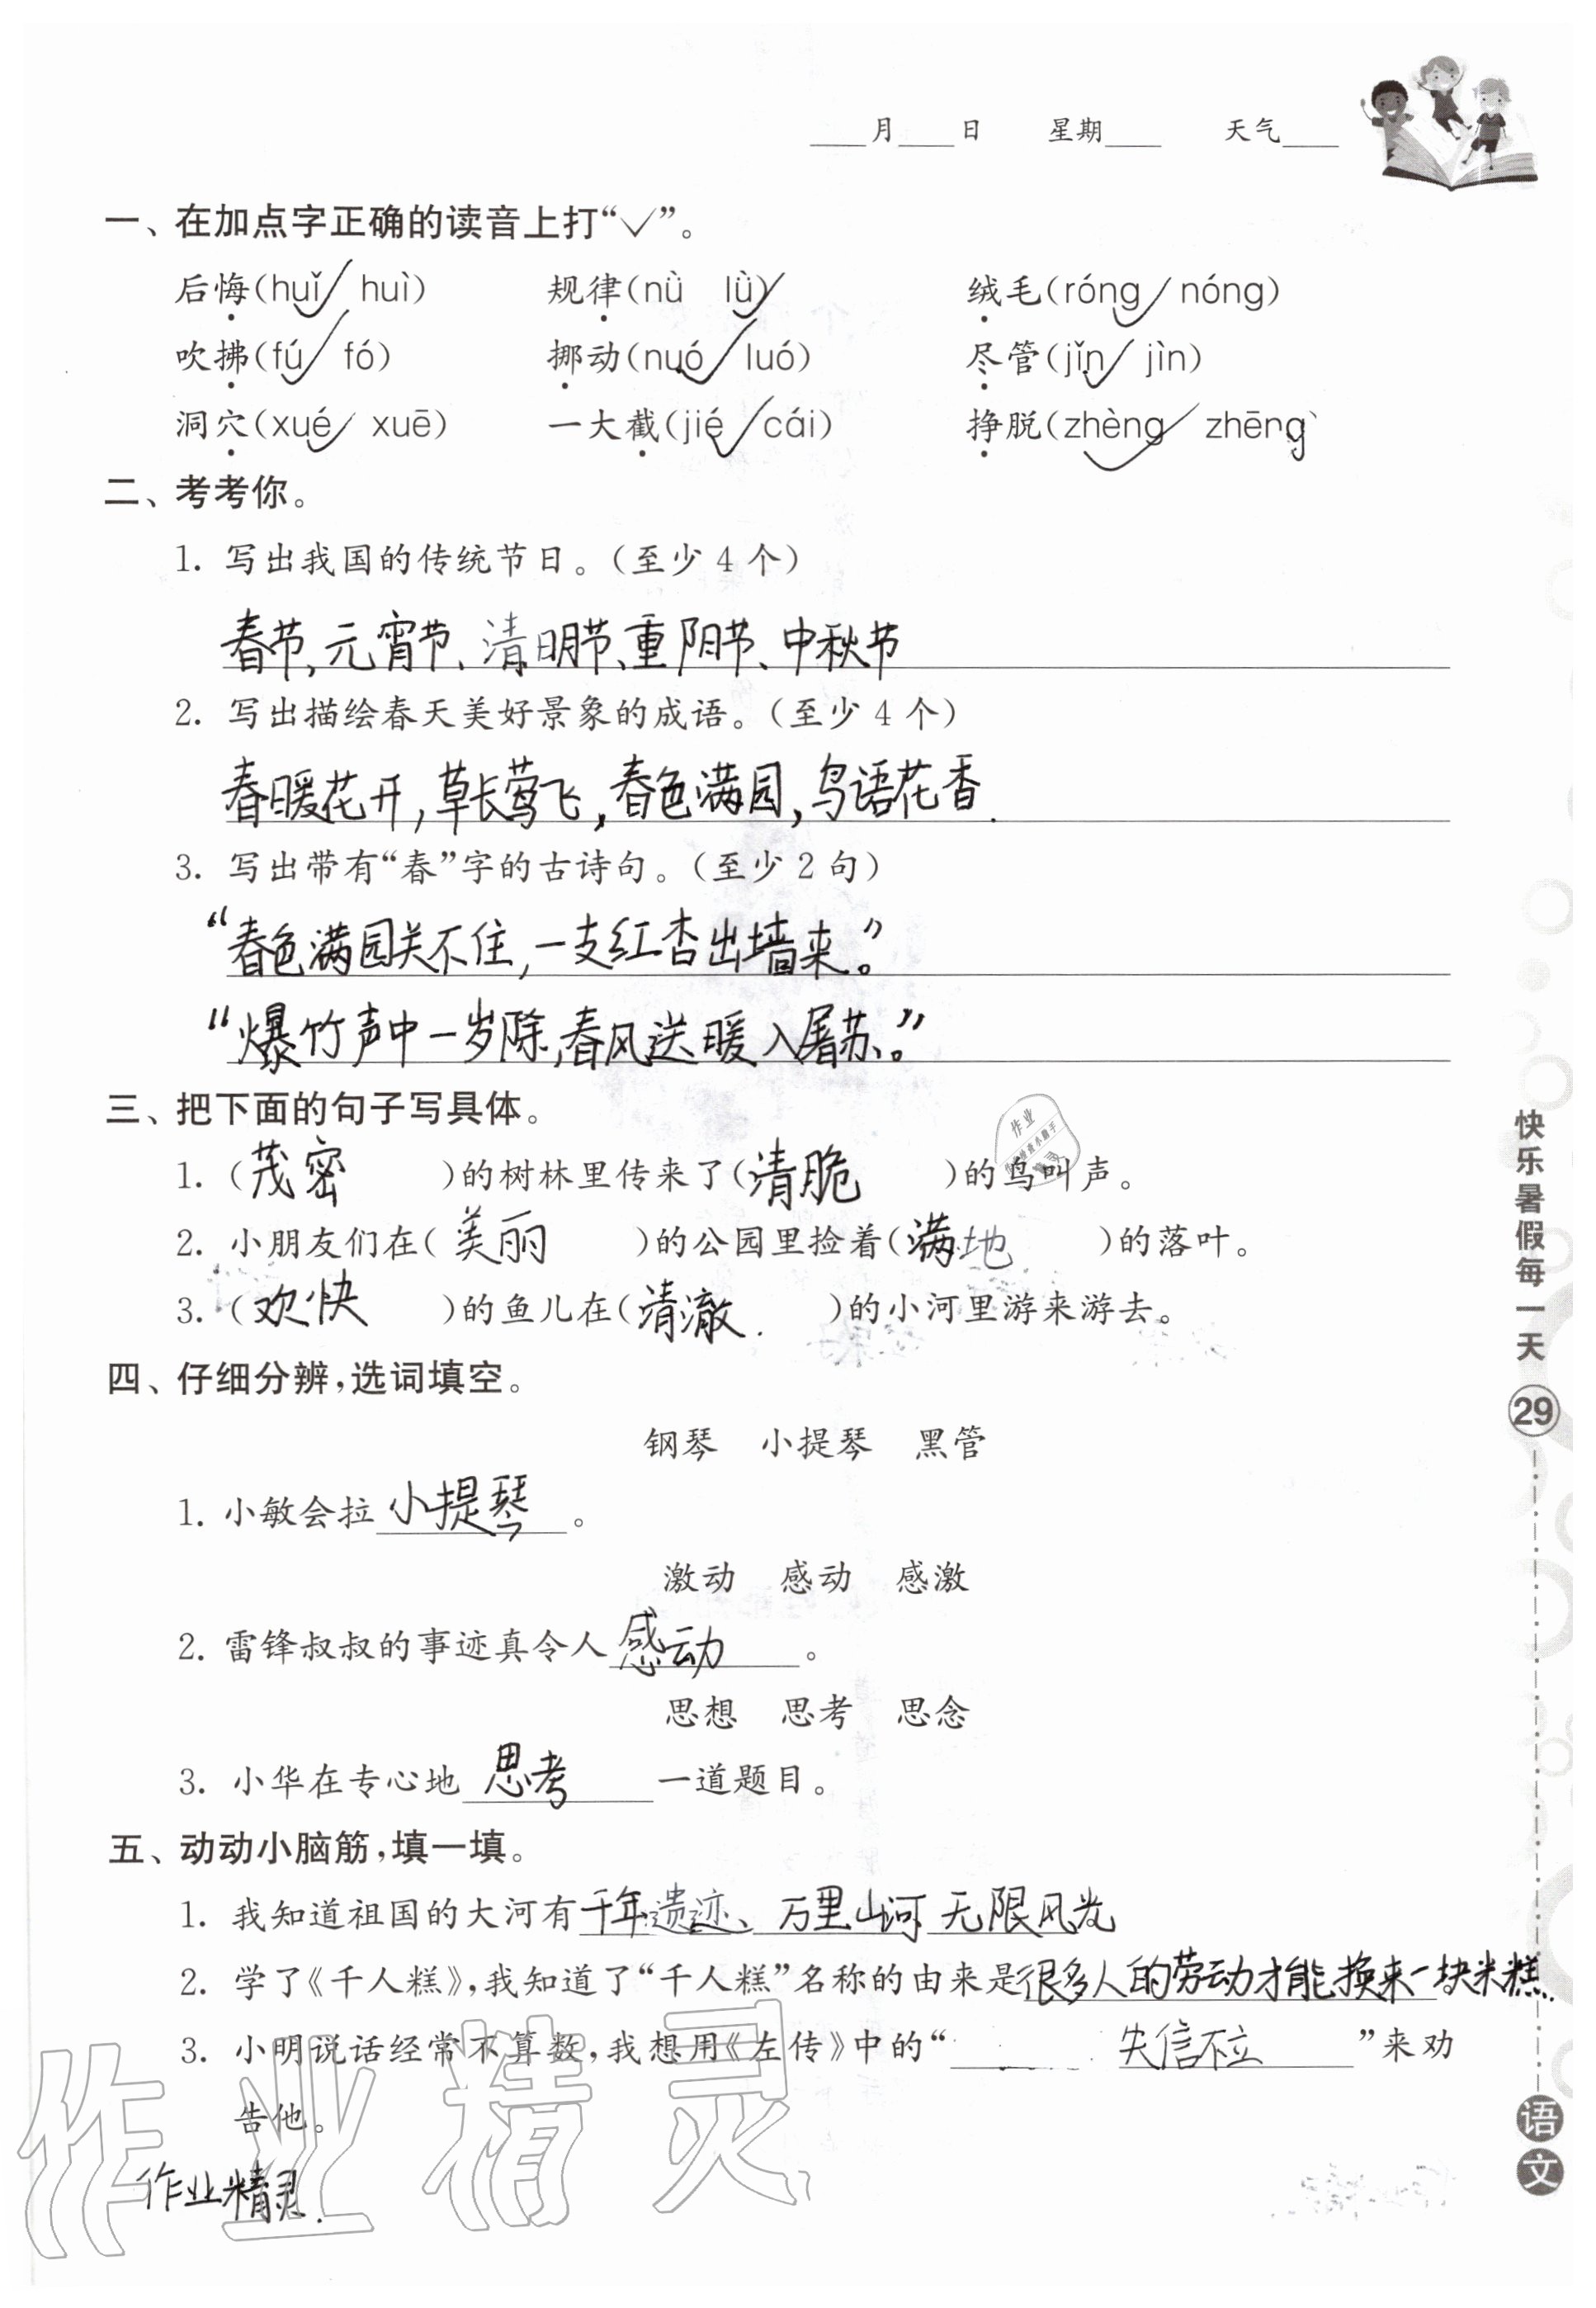 ____月____日 星期____ 天气____
一、在加点字正确的读音上打“✓”。
后悔(huǐ✓ huì) 规律(nǜ lǜ✓) 绒毛(róng✓ nóng)
吹拂(fú✓ fó) 挪动(nuó✓ luó) 尽管(jǐn✓ jìn)
洞穴(xué✓ xuē) 一大截(jié✓ cái) 挣脱(zhèng✓ zhēng)
二、考考你。
1. 写出我国的传统节日。(至少4个)
春节、元宵节、清明节、重阳节、中秋节
2. 写出描绘春天美好景象的成语。(至少4个)
春暖花开,草长莺飞,春色满园,鸟语花香.
3. 写出带有“春”字的古诗句。(至少2句)
“春色满园关不住,一支红杏出墙来。”
“爆竹声中一岁除,春风送暖入屠苏。”
三、把下面的句子写具体。
1. (茂密)的树林里传来了(清脆)的鸟叫声。
2. 小朋友们在(美丽)的公园里捡着(满地)的落叶。
3. (欢快)的鱼儿在(清澈.)的小河里游来游去。
四、仔细分辨,选词填空。
钢琴 小提琴 黑管
1. 小敏会拉小提琴。
激动 感动 感激
2. 雷锋叔叔的事迹真令人感动。
思想 思考 思念
3. 小华在专心地思考一道题目。
五、动动小脑筋,填一填。
1. 我知道祖国的大河有千年遗迹、万里山河 无限风光
2. 学了《千人糕》,我知道了“千人糕”名称的由来是很多人的劳动才能换来一块米糕.
3. 小明说话经常不算数,我想用《左传》中的“失信不立”来劝
告他。
作业精灵
作业精灵.
快乐暑假每一天
29
语文